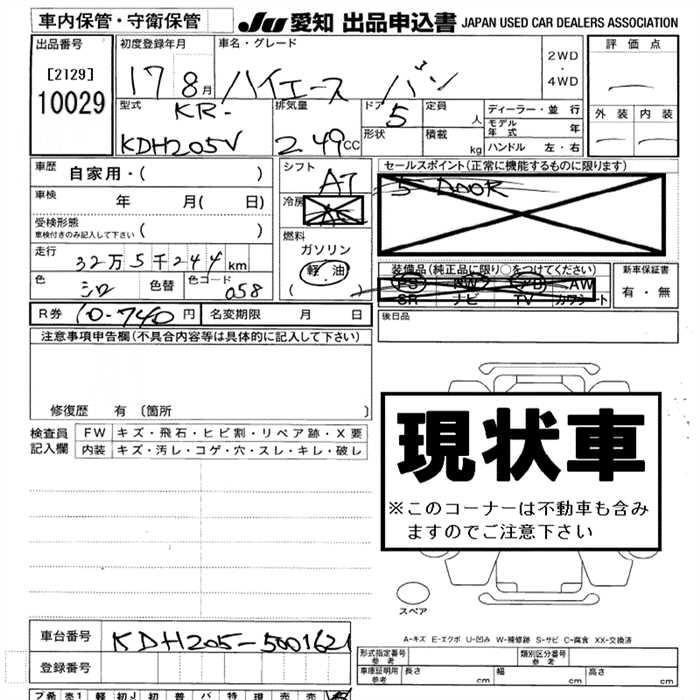 車内保管・守衛保管
JU 愛知 出品申込書 JAPAN USED CAR DEALERS ASSOCIATION
出品番号 初度登録年月 車名・グレード 評価点
[2129]
10029
17 8月 ハイエース バン
2WD
・
4WD
型式 KR- 排気量 ドア 5 定員 人 ディーラー・並行 外装 内装
KDH205V 2.49CC 形状 積載 kg モデル年式 年
ハンドル 左・右
車歴 自家用・( )
シフト AT
セールスポイント(正常に機能するものに限ります)
5 DOOR
車検 年 月( 日)
冷房
受検形態
車検付きのみ記入して下さい ( )
燃料
ガソリン
軽油
( )
走行 32万5千244km
装備品(純正品に限り○をつけてください) 新車保証書
PS PW AB AW
SR ナビ TV カワシート
有・無
色 シロ 色替 色コード 058
R券 10-740円 名変期限 月 日
後日品
注意事項申告欄(不具合内容等は具体的に記入して下さい)
修復歴 有 〔箇所 〕
現状車
※このコーナーは不動車も含み
ますのでご注意下さい
検査員 FW キズ・飛石・ヒビ割・リペア跡・X要
記入欄 内装 キズ・汚レ・コゲ・穴・スレ・キレ・破レ
スペア
A-キズ E-エクボ U-凹み W-補修跡 S-サビ C-腐食 XX-交換済
車台番号 KDH205-5001621
登録番号
形式指定番号 参考 類別区分番号 参考
車庫証明用 参考 長さ cm 幅 cm 高さ cm